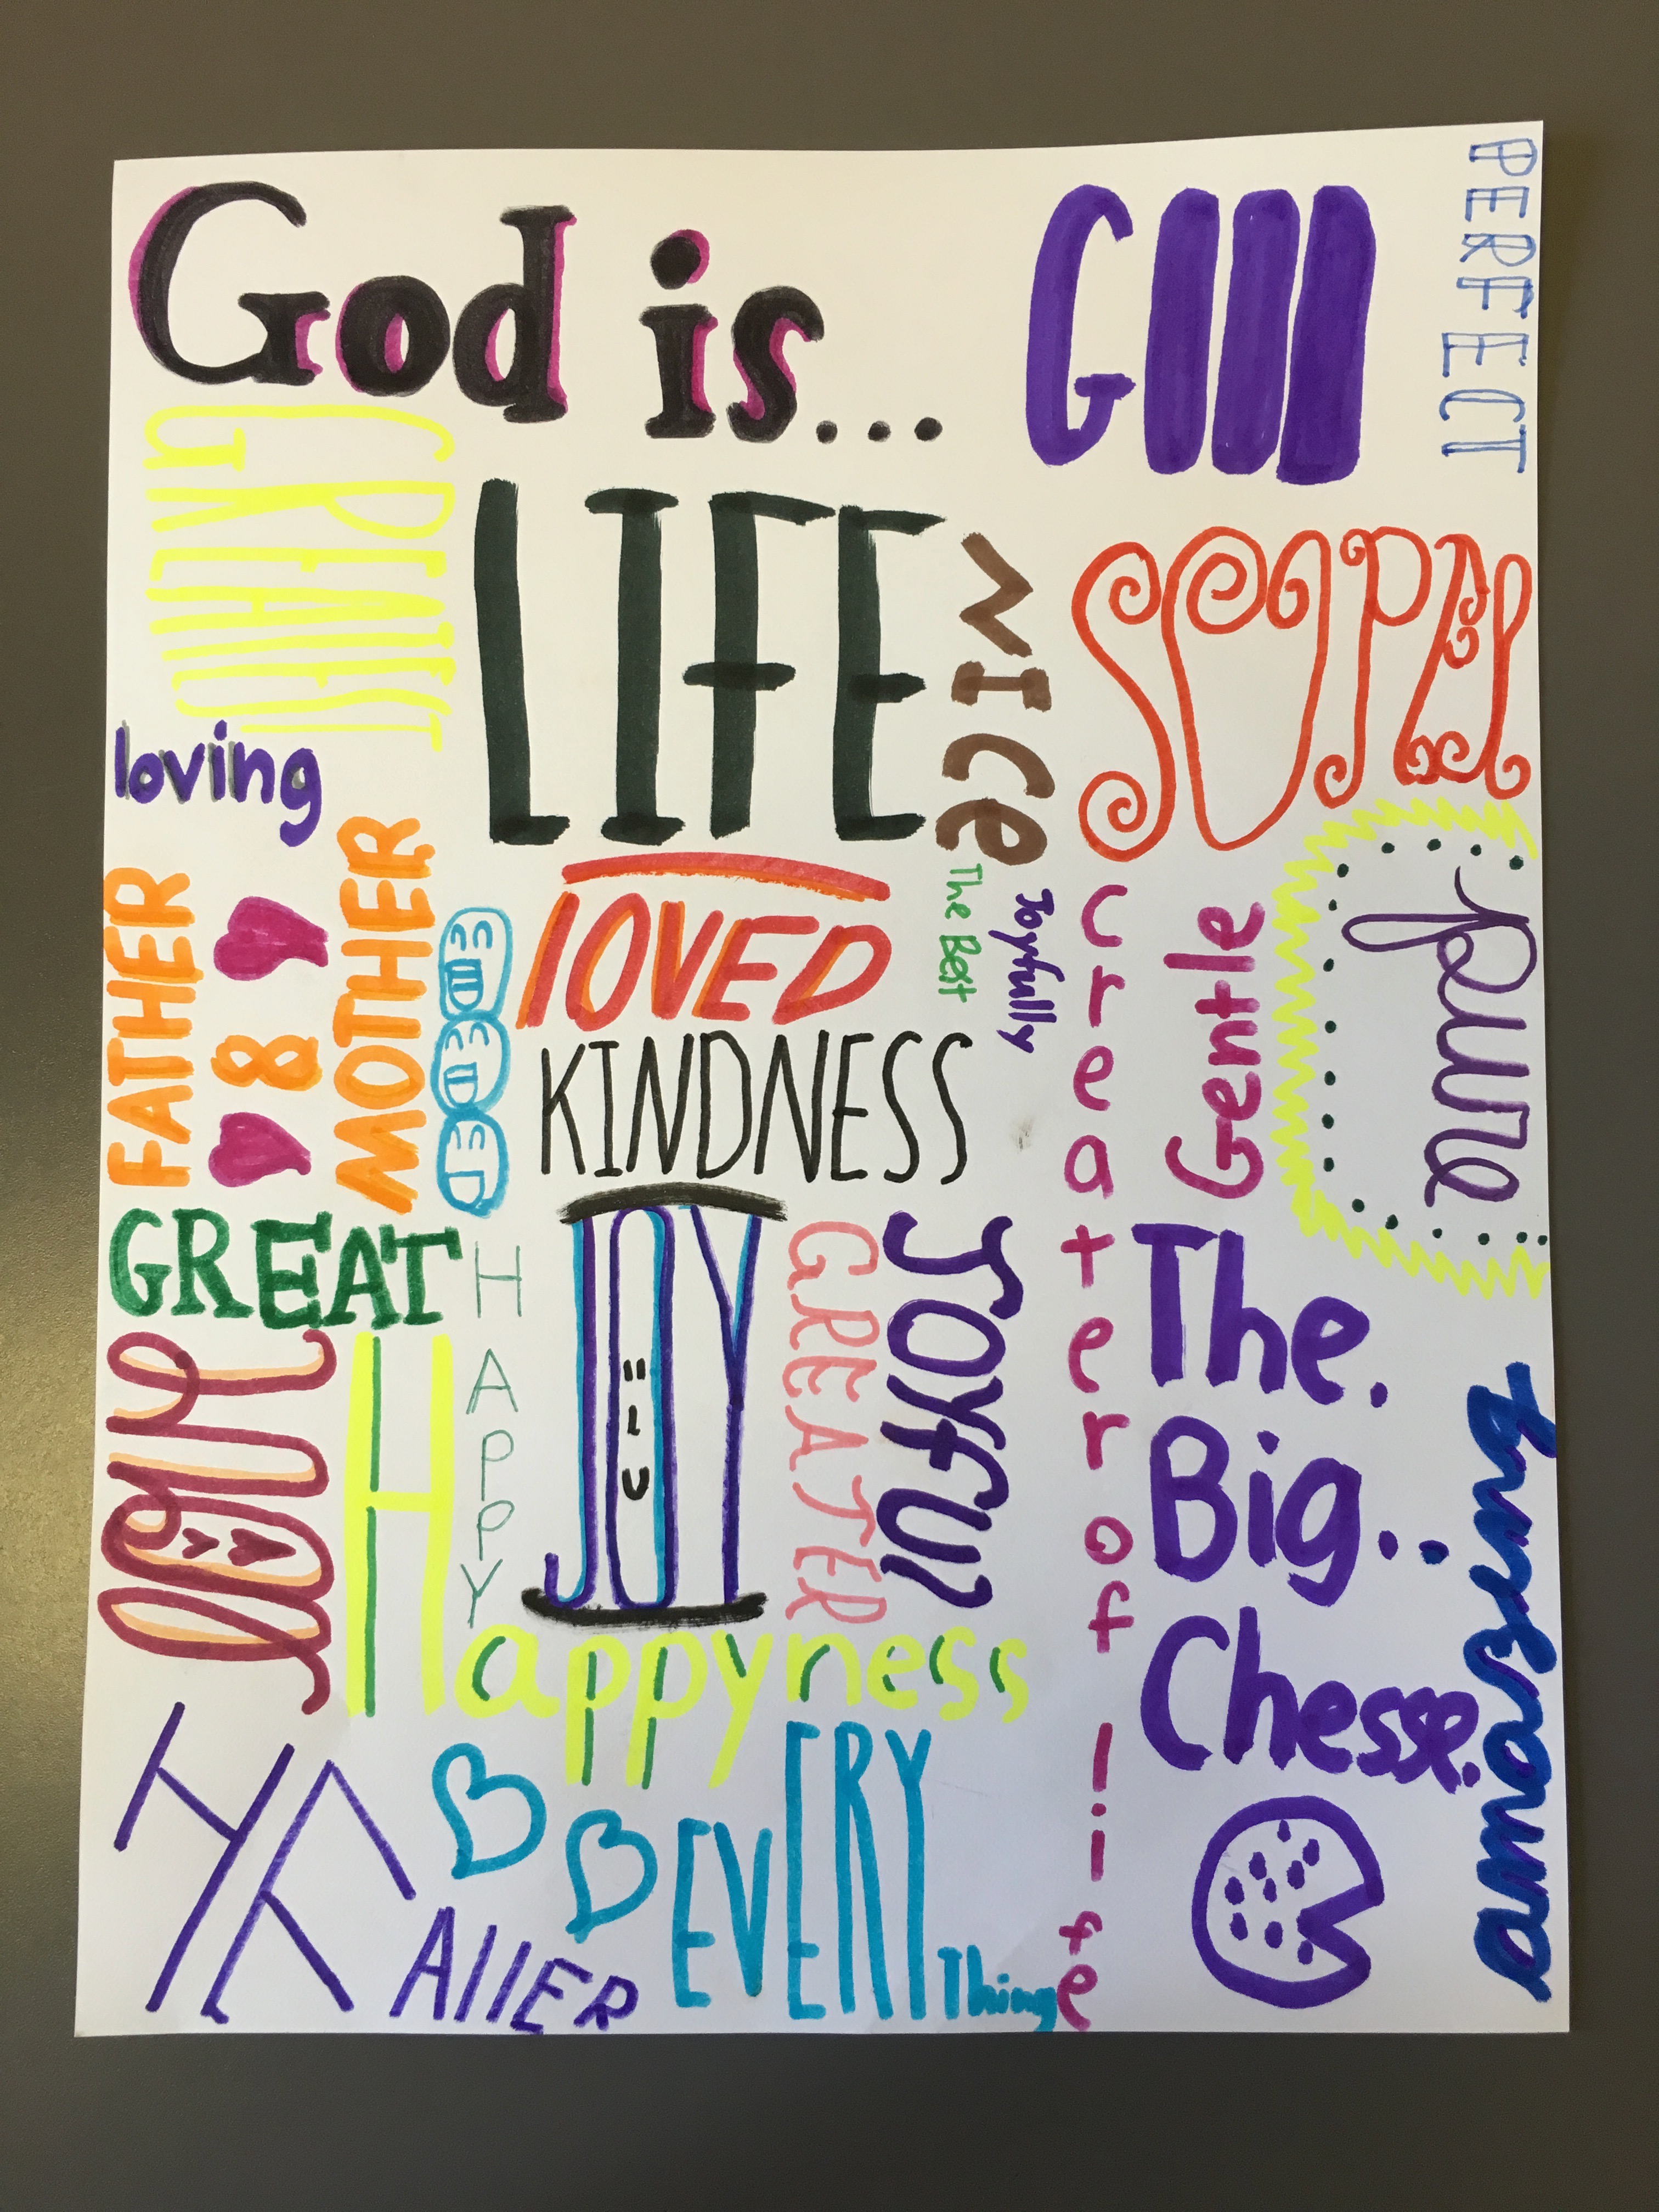 God is...
PERFECT
GREATEST
LIFE
NICe
loving
FATHER
&
MOTHER
lOVED
The Best
Joyfully
Creater of life
Gentle
pure
KINDNESS
GREAT
HAPPY
JOY
GREATER
JOYFUl
The.
Big..
Chesse.
love
Happyness
amazing
EVERY Thing